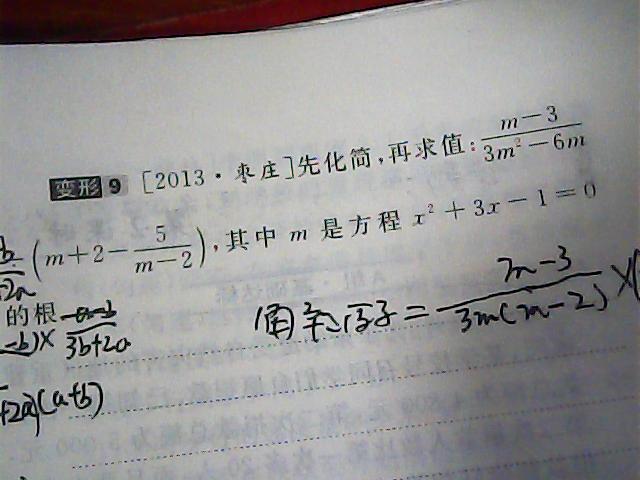 变形9 [2013·枣庄]先化简,再求值:\frac{m-3}{3m^2-6m}
(m+2-\frac{5}{m-2}),其中 m 是方程 x^2+3x-1=0
的根
解:原式=\frac{m-3}{3m(m-2)}×(
-b)×\frac{a-b}{3b+2a}
+2a)(a+b)